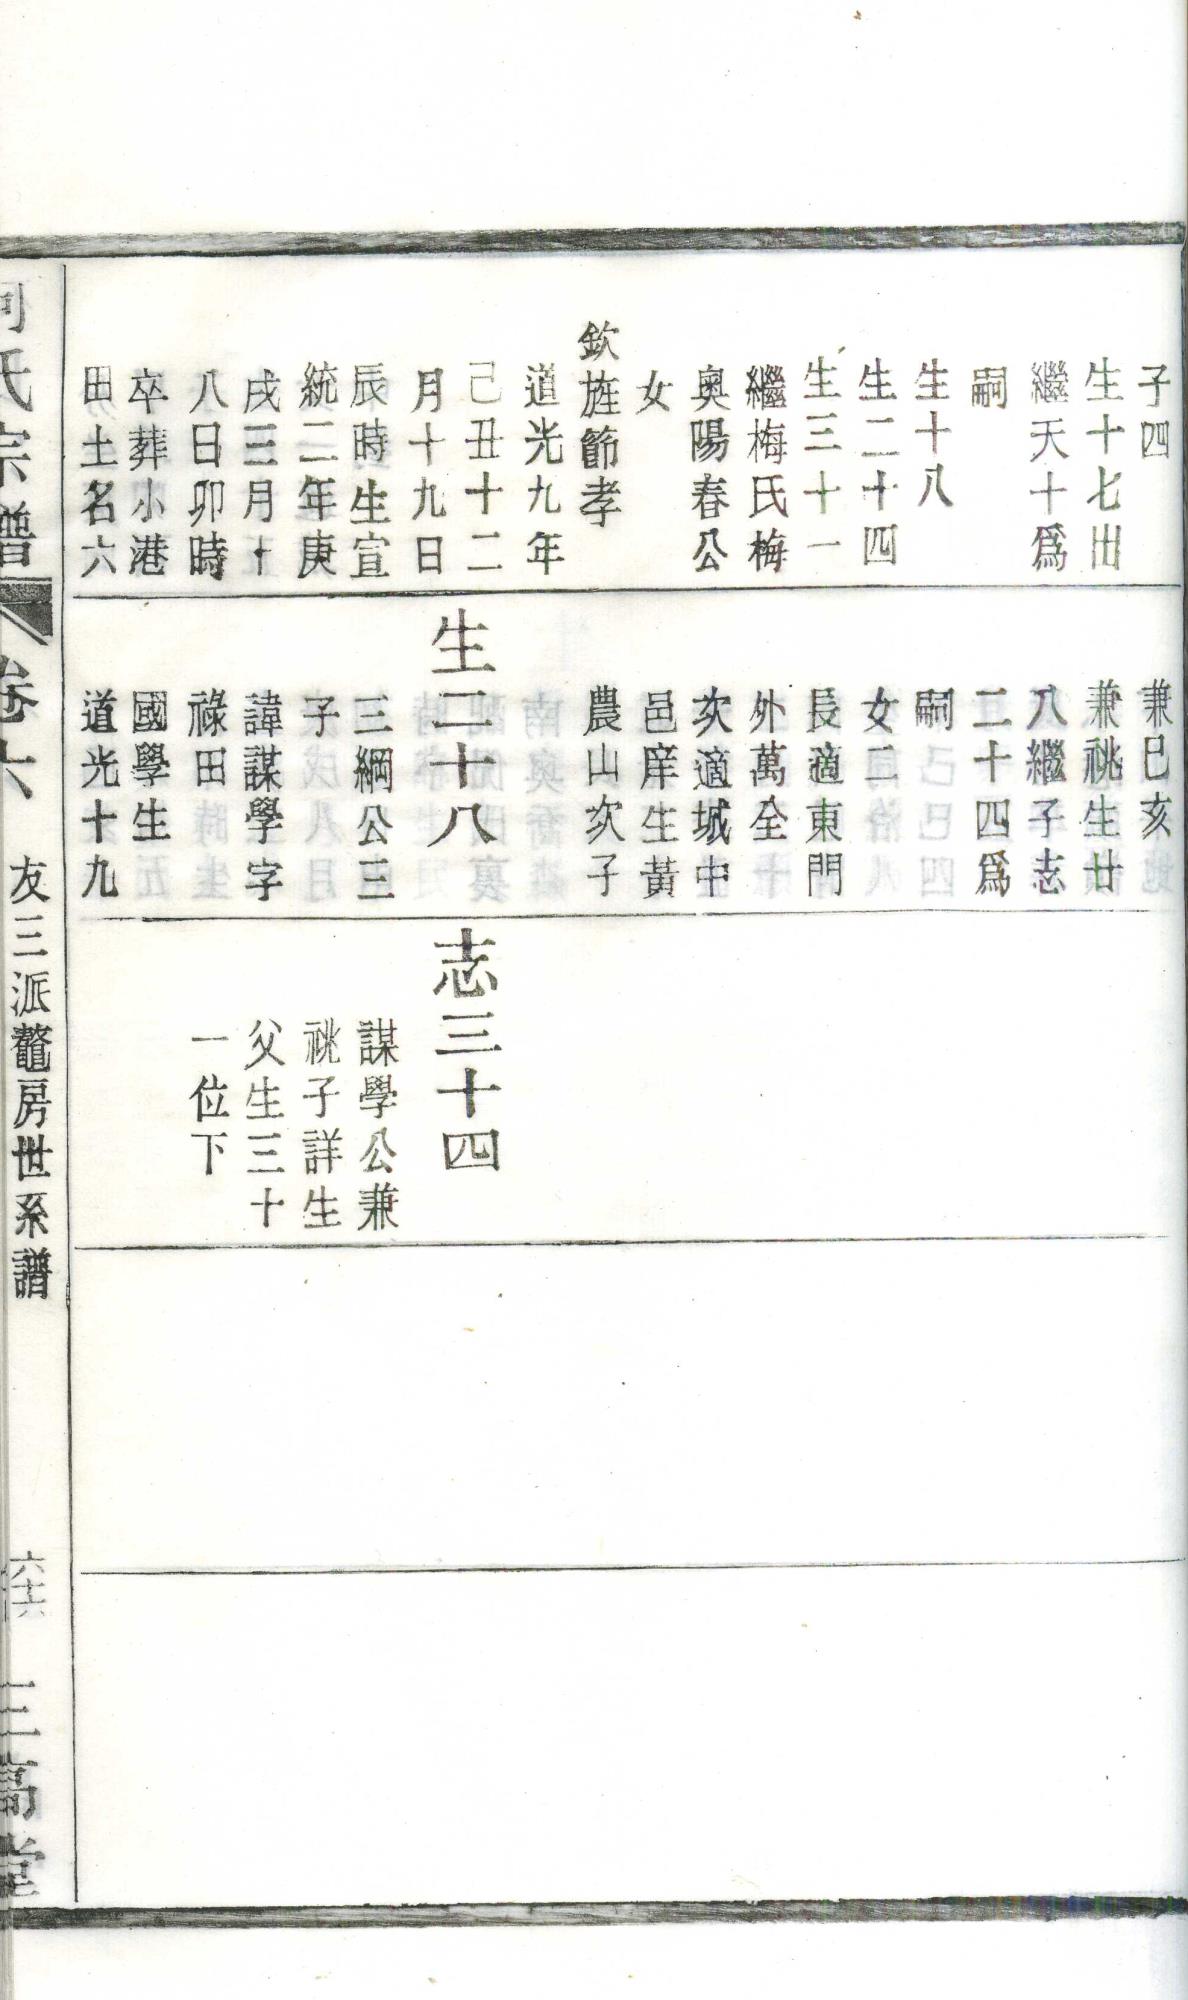 子四
生十七出
繼天十爲
嗣
生十八
生二十四
生三十一
繼梅氏梅
奥陽春公
女
欽旌節孝
道光九年
己丑十二
月十九日
辰時生宣
統二年庚
戌三月十
八日卯時
卒葬小港
田土名六
兼巳亥
兼祧生廿
八繼子志
二十四爲
嗣
女二
長適東門
外萬全
次適城中
邑庠生黃
農山次子
生二十八
三綱公三
子
諱謀學字
祿田
國學生
道光十九
志三十四
謀學公兼
祧子詳生
父生三十
一位下
氏宗譜
卷六
友三派鼇房世系譜
六十六
三高堂